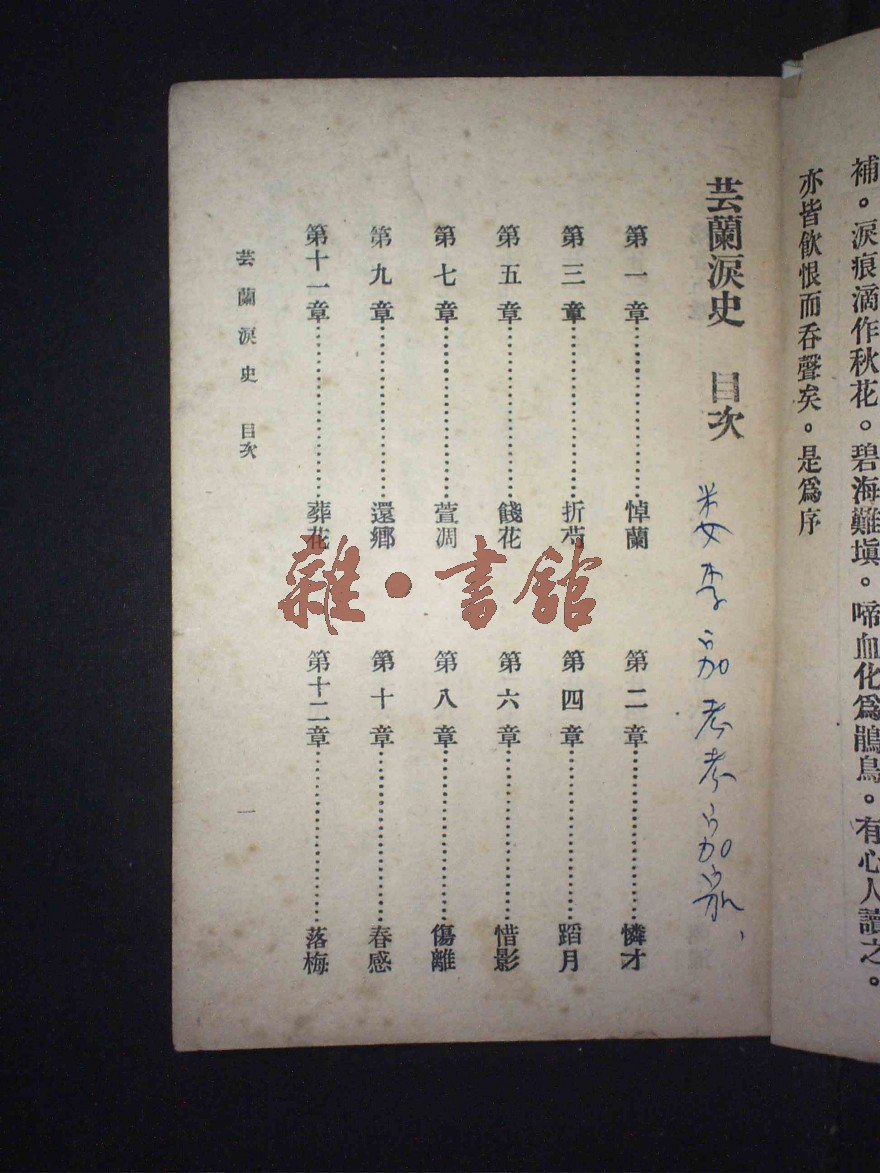 補。淚痕滴作秋花。碧海難塡。啼血化爲鵑鳥。有心人讀之。
亦皆飮恨而吞聲矣。是爲序
芸蘭淚史 目次
第一章…………悼蘭
第二章…………憐才
第三章…………折芍
第四章…………蹈月
第五章…………餞花
第六章…………惜影
第七章…………萱凋
第八章…………傷離
第九章…………還鄉
第十章…………春感
第十一章…………葬花
第十二章…………落梅
芸蘭淚史 目次
一
雜·書館